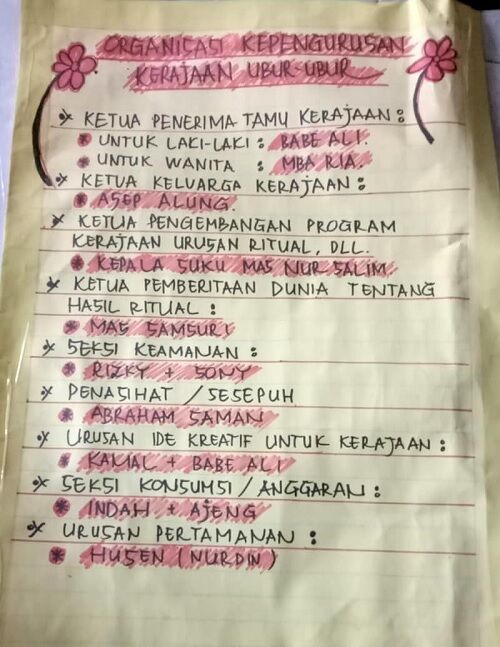 ORGANISASI KEPENGURUSAN
KERAJAAN UBUR-UBUR
* KETUA PENERIMA TAMU KERAJAAN :
* UNTUK LAKI-LAKI : BABE ALI.
* UNTUK WANITA : MBA RIA.
* KETUA KELUARGA KERAJAAN :
* ASEP ALUNG.
* KETUA PENGEMBANGAN PROGRAM
KERAJAAN URUSAN RITUAL, DLL.
* KEPALA SUKU MAS NUR SALIM
* KETUA PEMBERITAAN DUNIA TENTANG
HASIL RITUAL :
* MAS SAMSURI
* SEKSI KEAMANAN :
* RIZKY + SONY
* PENASIHAT / SESEPUH
* ABRAHAM SAMAN
* URUSAN IDE KREATIF UNTUK KERAJAAN :
* KAMAL + BABE ALI
* SEKSI KONSUMSI / ANGGARAN :
* INDAH + AJENG
* URUSAN PERTAMANAN :
* HUSEN (NURDIN)